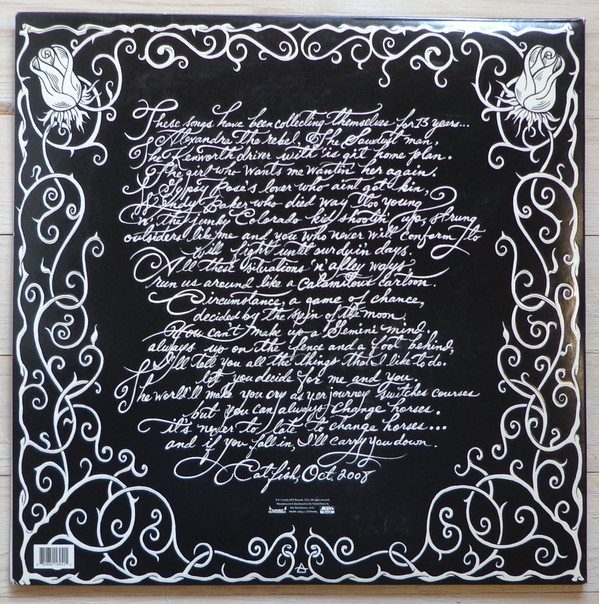 These songs have been collecting themselves for 13 years...
Alexandra the rebel, The Sawdust man,
The Kenworth driver with 'is girl home plan.
The girl who wants me wantin' her again.
Gypsy Rose's lover who ain't got kin,
Andy Baker who died way too young
'n' the funky Colorado kid shootin' up, strung
outsiders like me and you who never will conform to
will fight until our dyin' days.
All these situations 'n' alley ways,
run us around like a Calamitous cartoon.
Circumstance, a game of chance,
decided by the spin of the moon.
You can't make up a Gemini mind,
always up on the fence and a foot behind,
I'll tell you all the things that I like to do.
let you decide for me and you.
The world'll make you cry as yer journey switches courses
but you can always change horses.
it's never to late to change horses...
and if you fall in, I'll carry you down.
Catfish, Oct, 2008